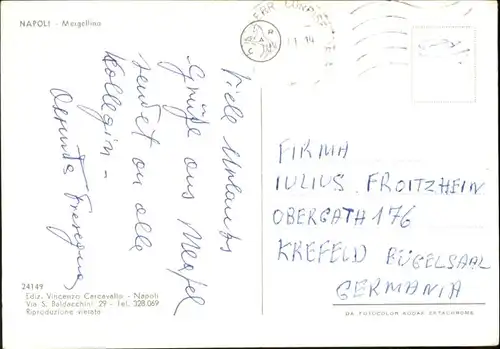 NAPOLI - Mergellina
Viele Urlaubs
Grüße aus Neapel
sendet an alle
Kollegin -
FIRMA
IULIUS FROITZHEIN
OBERGATH 176
KREFELD BÜGELSAAL
GERMANIA
24149
Ediz. Vincenzo Carcavallo - Napoli
Via S. Baldacchini 29 - Tel. 328.069
Riproduzione vietata
DA FOTOCOLOR KODAK EKTACHROME